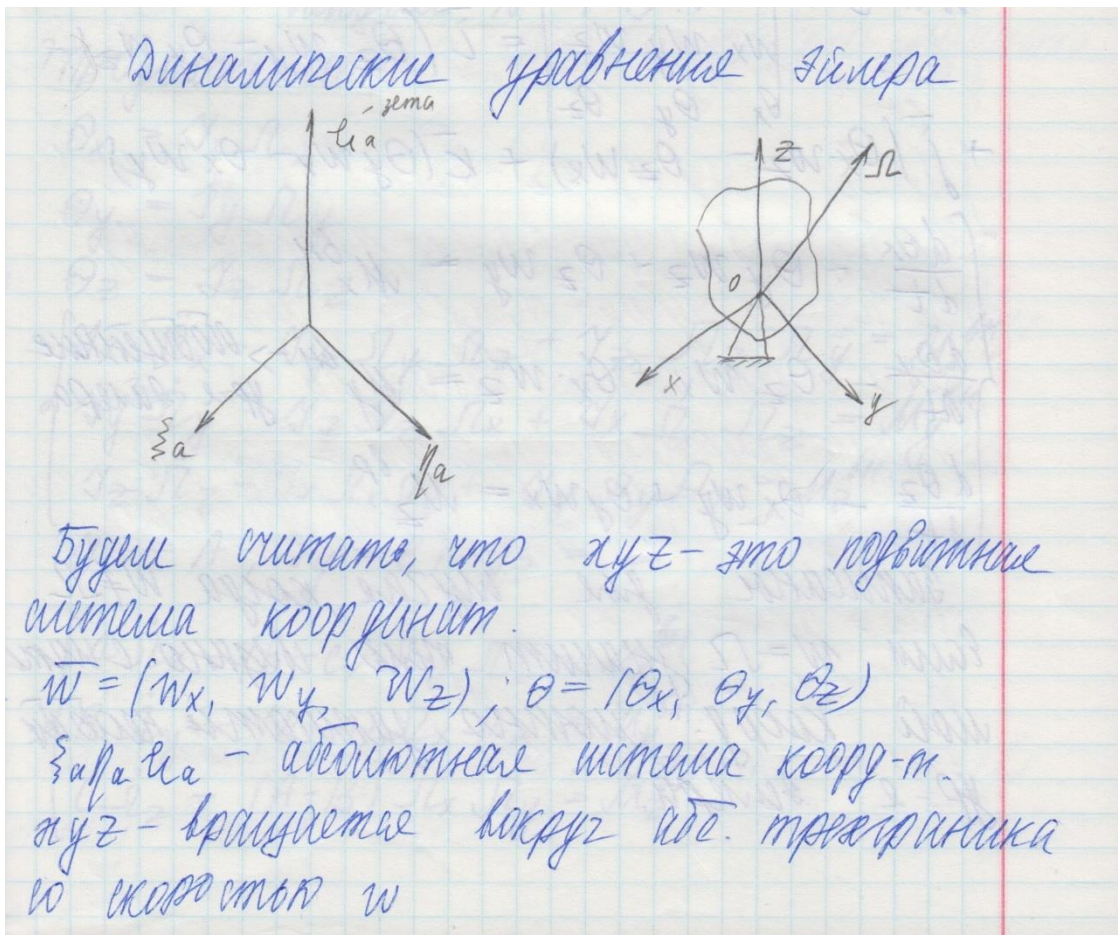 Динамические уравнения Эйлера
ζa - зета
z
Ω
0
x
y
ξa
ηa
Будем считать, что xyz - это подвижная
система координат.
w̅ = (wx, wy, wz); θ = (θx, θy, θz)
ξa ηa ζa - абсолютная система коорд-т.
xyz - вращается вокруг абс. трехгранника
со скоростью w